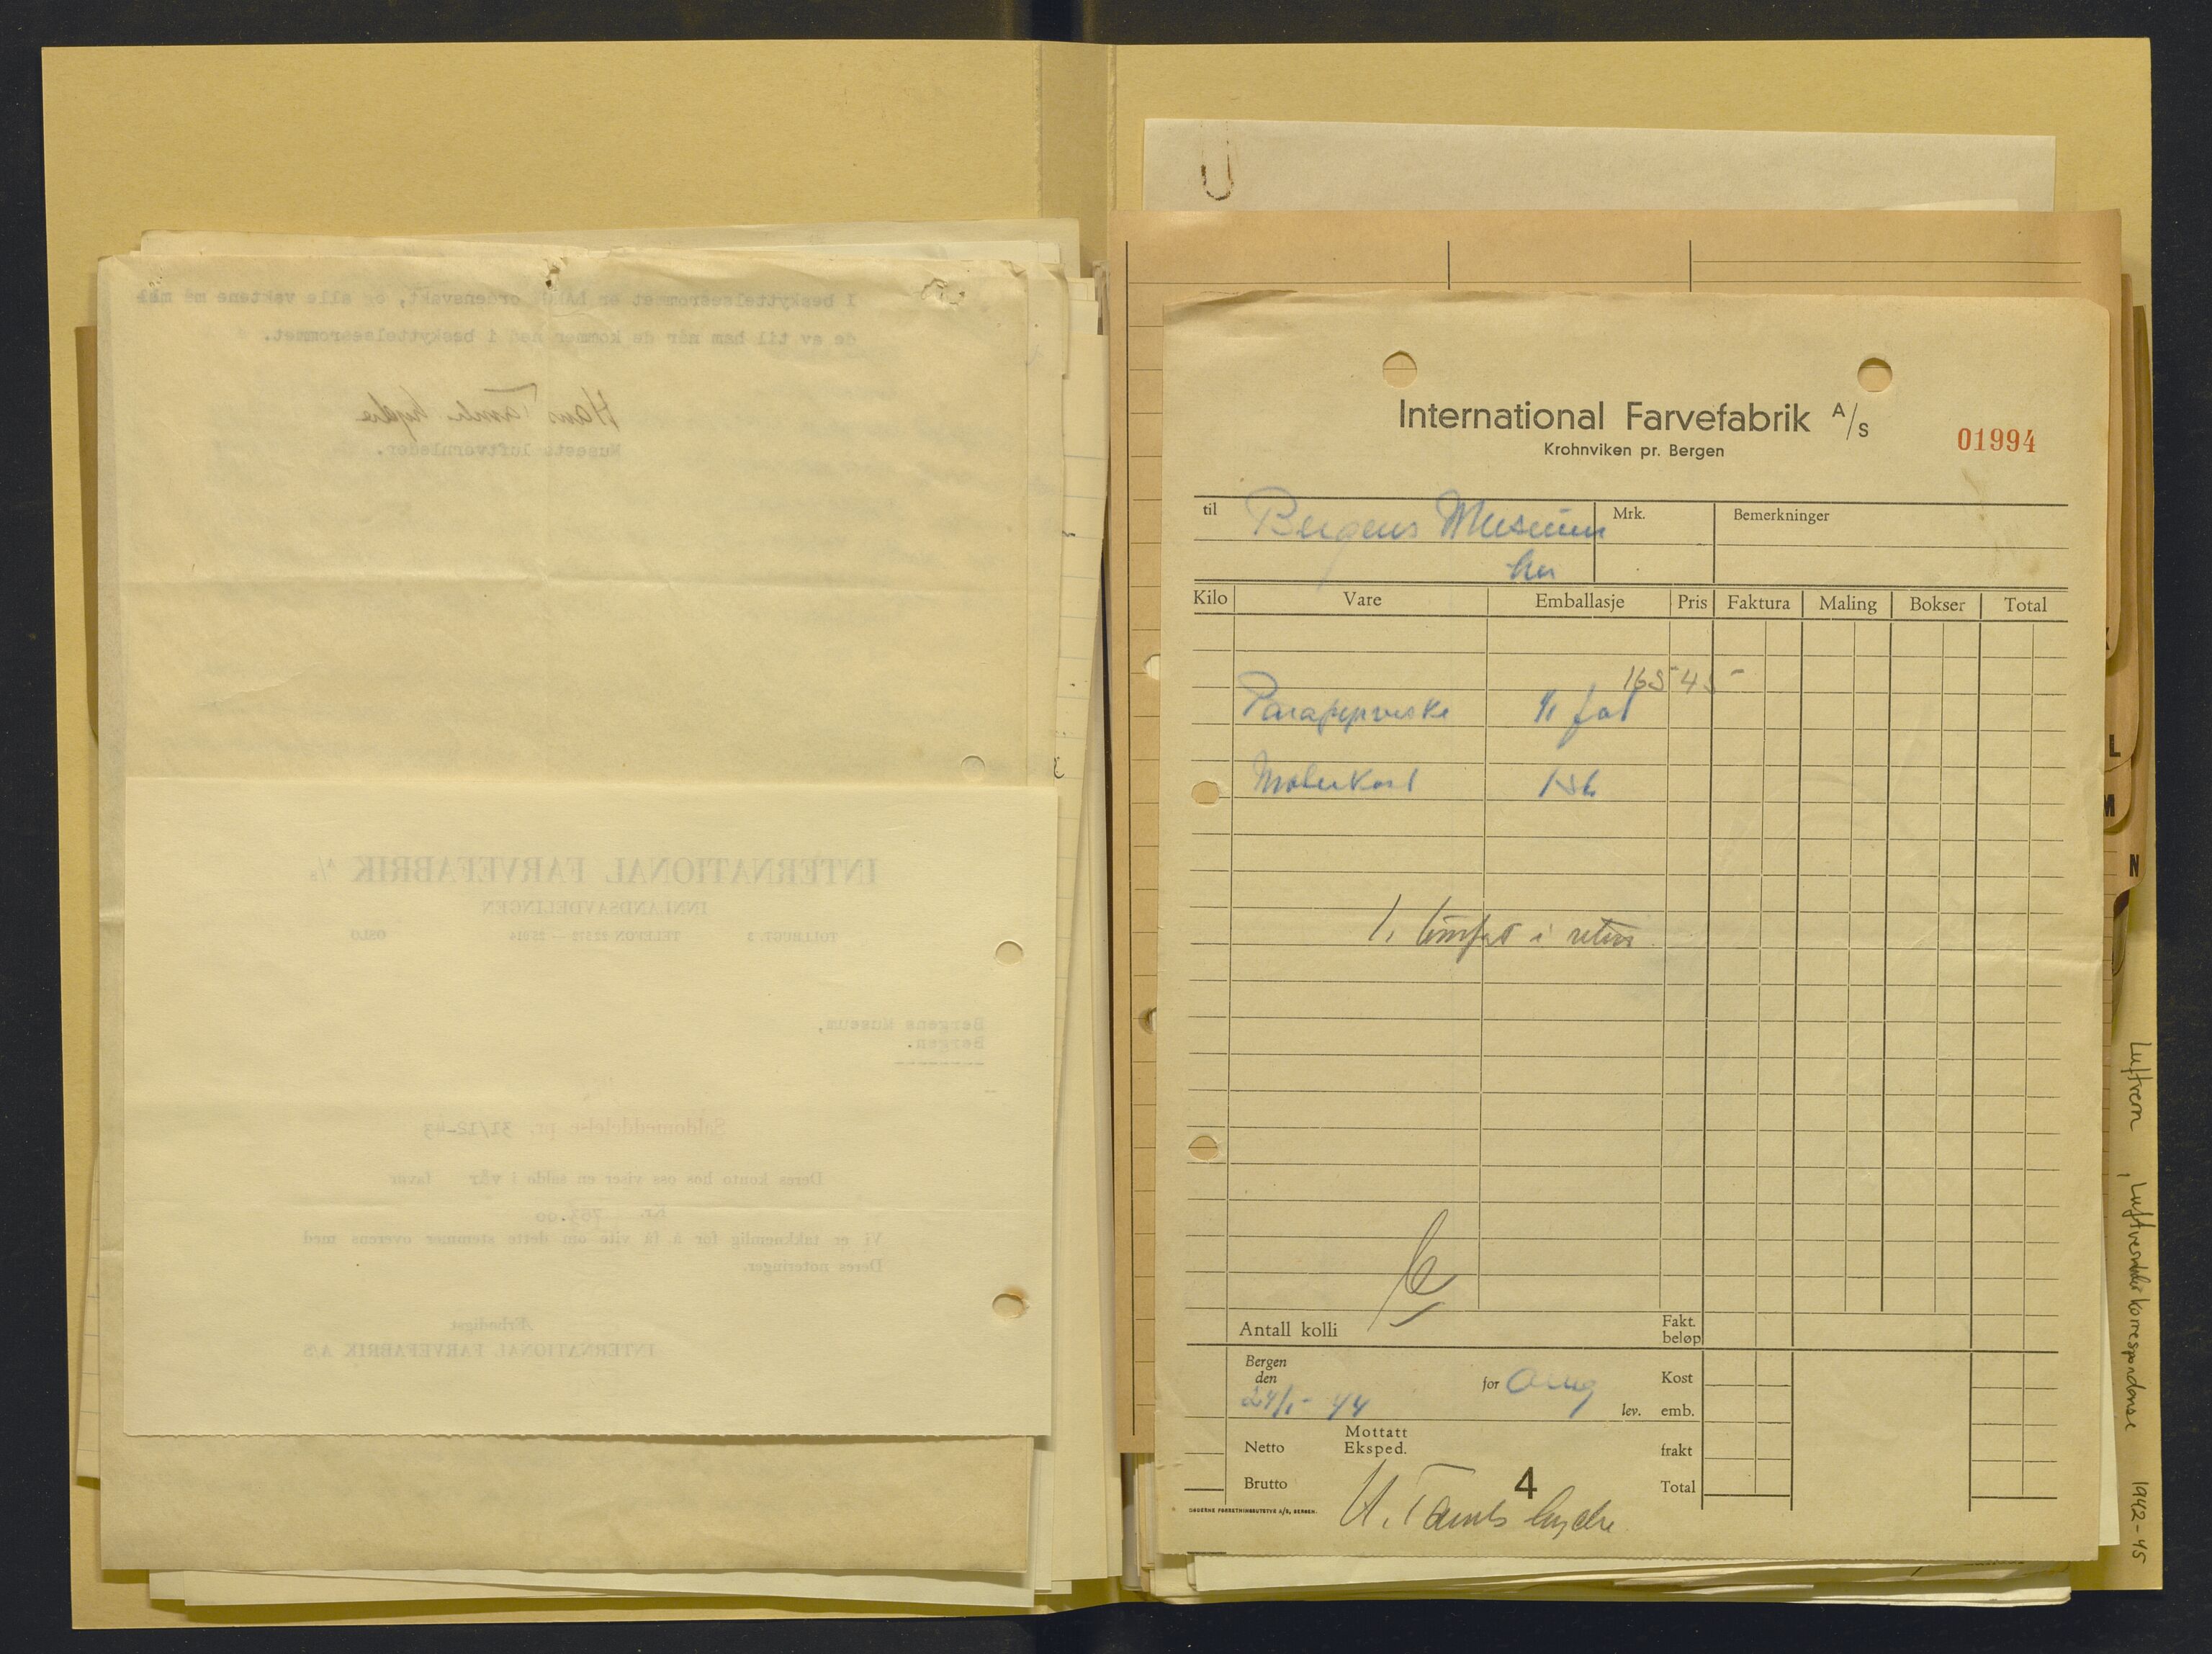 I beskyttelsesrommet er ordensvakt, og alle vaktene må mel
de av til ham når de kommer ned i beskyttelsesrommet.
Hans Tambs Lyche
Museets luftvernleder.
INTERNATIONAL FARVEFABRIK A/S
INNLANDSAVDELINGEN
TOLLBUGT. 3 TELEFON OSLO
Bergens Museum,
Bergen.
Saldomeddelelse pr. 31/12-43
Deres konto hos oss viser en saldo i vår favør
Kr. 763.00
Vi er takknemlig for å få vite om dette stemmer overens med
Deres noteringer.
Ærbødigst
INTERNATIONAL FARVEFABRIK A/S
International Farvefabrik A/S
Krohnviken pr. Bergen
01994
til Bergens Museum Mrk. Bemerkninger
her
Kilo Vare Emballasje Pris Faktura Maling Bokser Total
165 45
1/1 fat
Malerkost 1 stk
1. tomfat i retur
Antall kolli Fakt. beløp
Bergen
den
24/1-44
for
lev.
Kost
emb.
frakt
Total
Mottatt
Netto Eksped.
Brutto 4
H. Tambs Lyche
MODERNE FORRETNINGSUTSTYR A/S, BERGEN.
L
M
N
Luftvern, Luftvernleders korrespondanse 1942-45